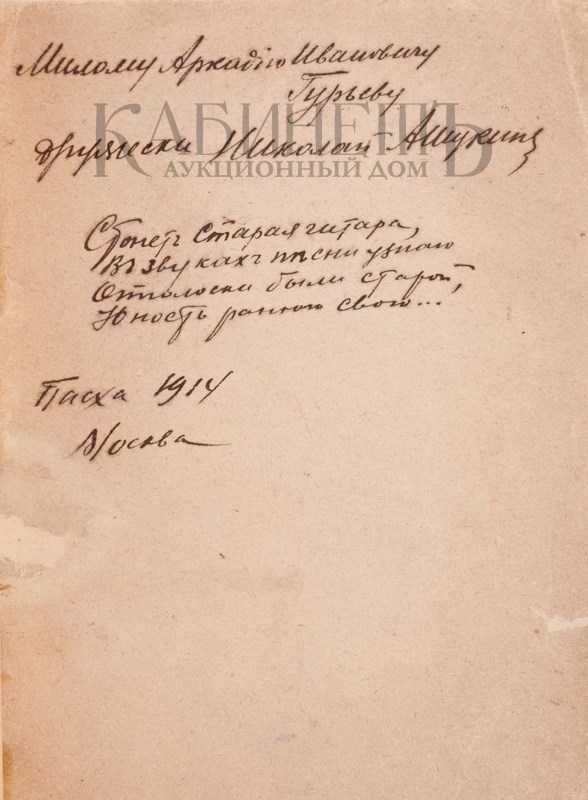 Милому Аркадію Ивановичу
Гурьеву
дружески Николай Ашукинъ
КАБИНЕТЪ
АУКЦИОННЫЙ ДОМ
Стонетъ старая гитара,
Въ звукахъ пѣсни узнаю
Отголоски были старой,
Юность раннюю свою...
Пасха 1914
Москва